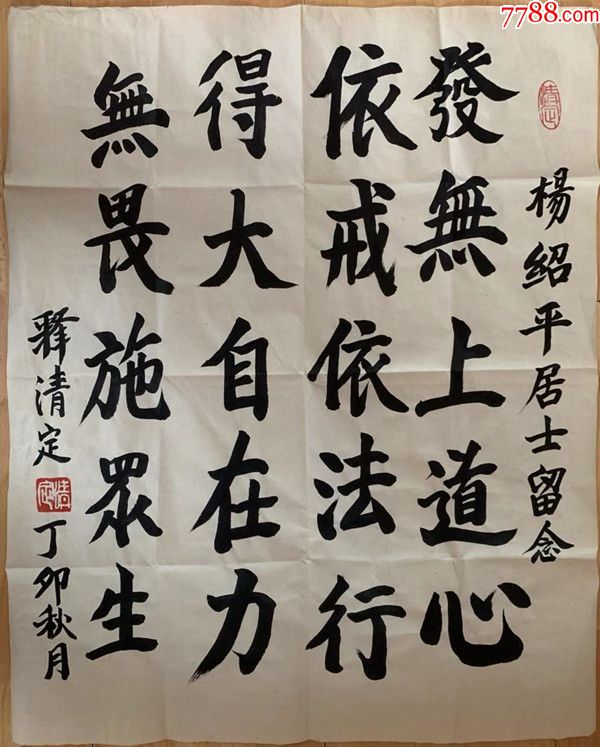 7788.com
清定
楊紹平居士留念
發無上道心
依戒依法行
得大自在力
無畏施眾生
釋清定
清定
丁卯秋月